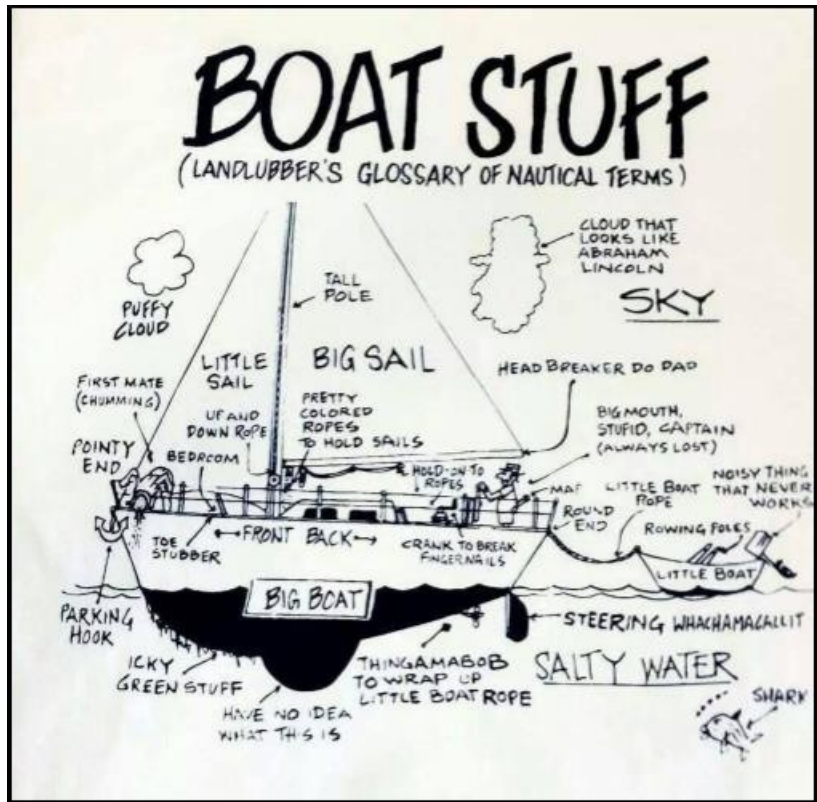 BOAT STUFF
(LANDLUBBER'S GLOSSARY OF NAUTICAL TERMS)
CLOUD THAT
LOOKS LIKE
ABRAHAM
LINCOLN
SKY
PUFFY
CLOUD
TALL
POLE
LITTLE
SAIL
BIG SAIL
HEAD BREAKER DO DAD
FIRST MATE
(CHUMMING)
UP AND
DOWN ROPE
PRETTY
COLORED
ROPES
TO HOLD SAILS
BIG MOUTH,
STUPID, CAPTAIN
(ALWAYS LOST)
POINTY
END
BEDROOM
HOLD-ON TO
ROPES
MAP
LITTLE BOAT
ROPE
NOISY THING
THAT NEVER
WORKS
ROUND
END
ROWING POLES
TOE
STUBBER
FRONT BACK
CRANK TO BREAK
FINGERNAILS
LITTLE BOAT
BIG BOAT
PARKING
HOOK
STEERING WHACHAMACALLIT
ICKY
GREEN STUFF
THINGAMABOB
TO WRAP UP
LITTLE BOAT ROPE
SALTY WATER
HAVE NO IDEA
WHAT THIS IS
SHARK